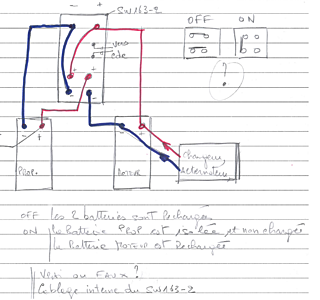 SW163-2
OFF ON
- +
+ -
- + - +
PROP.
MOTEUR
Chargeur,
Alternateur,
?
OFF les 2 batteries sont rechargées
ON la batterie PROP est isolée et non chargée
la batterie MOTEUR est rechargée
Vrai ou FAUX?
Cablage interne du SW163-2